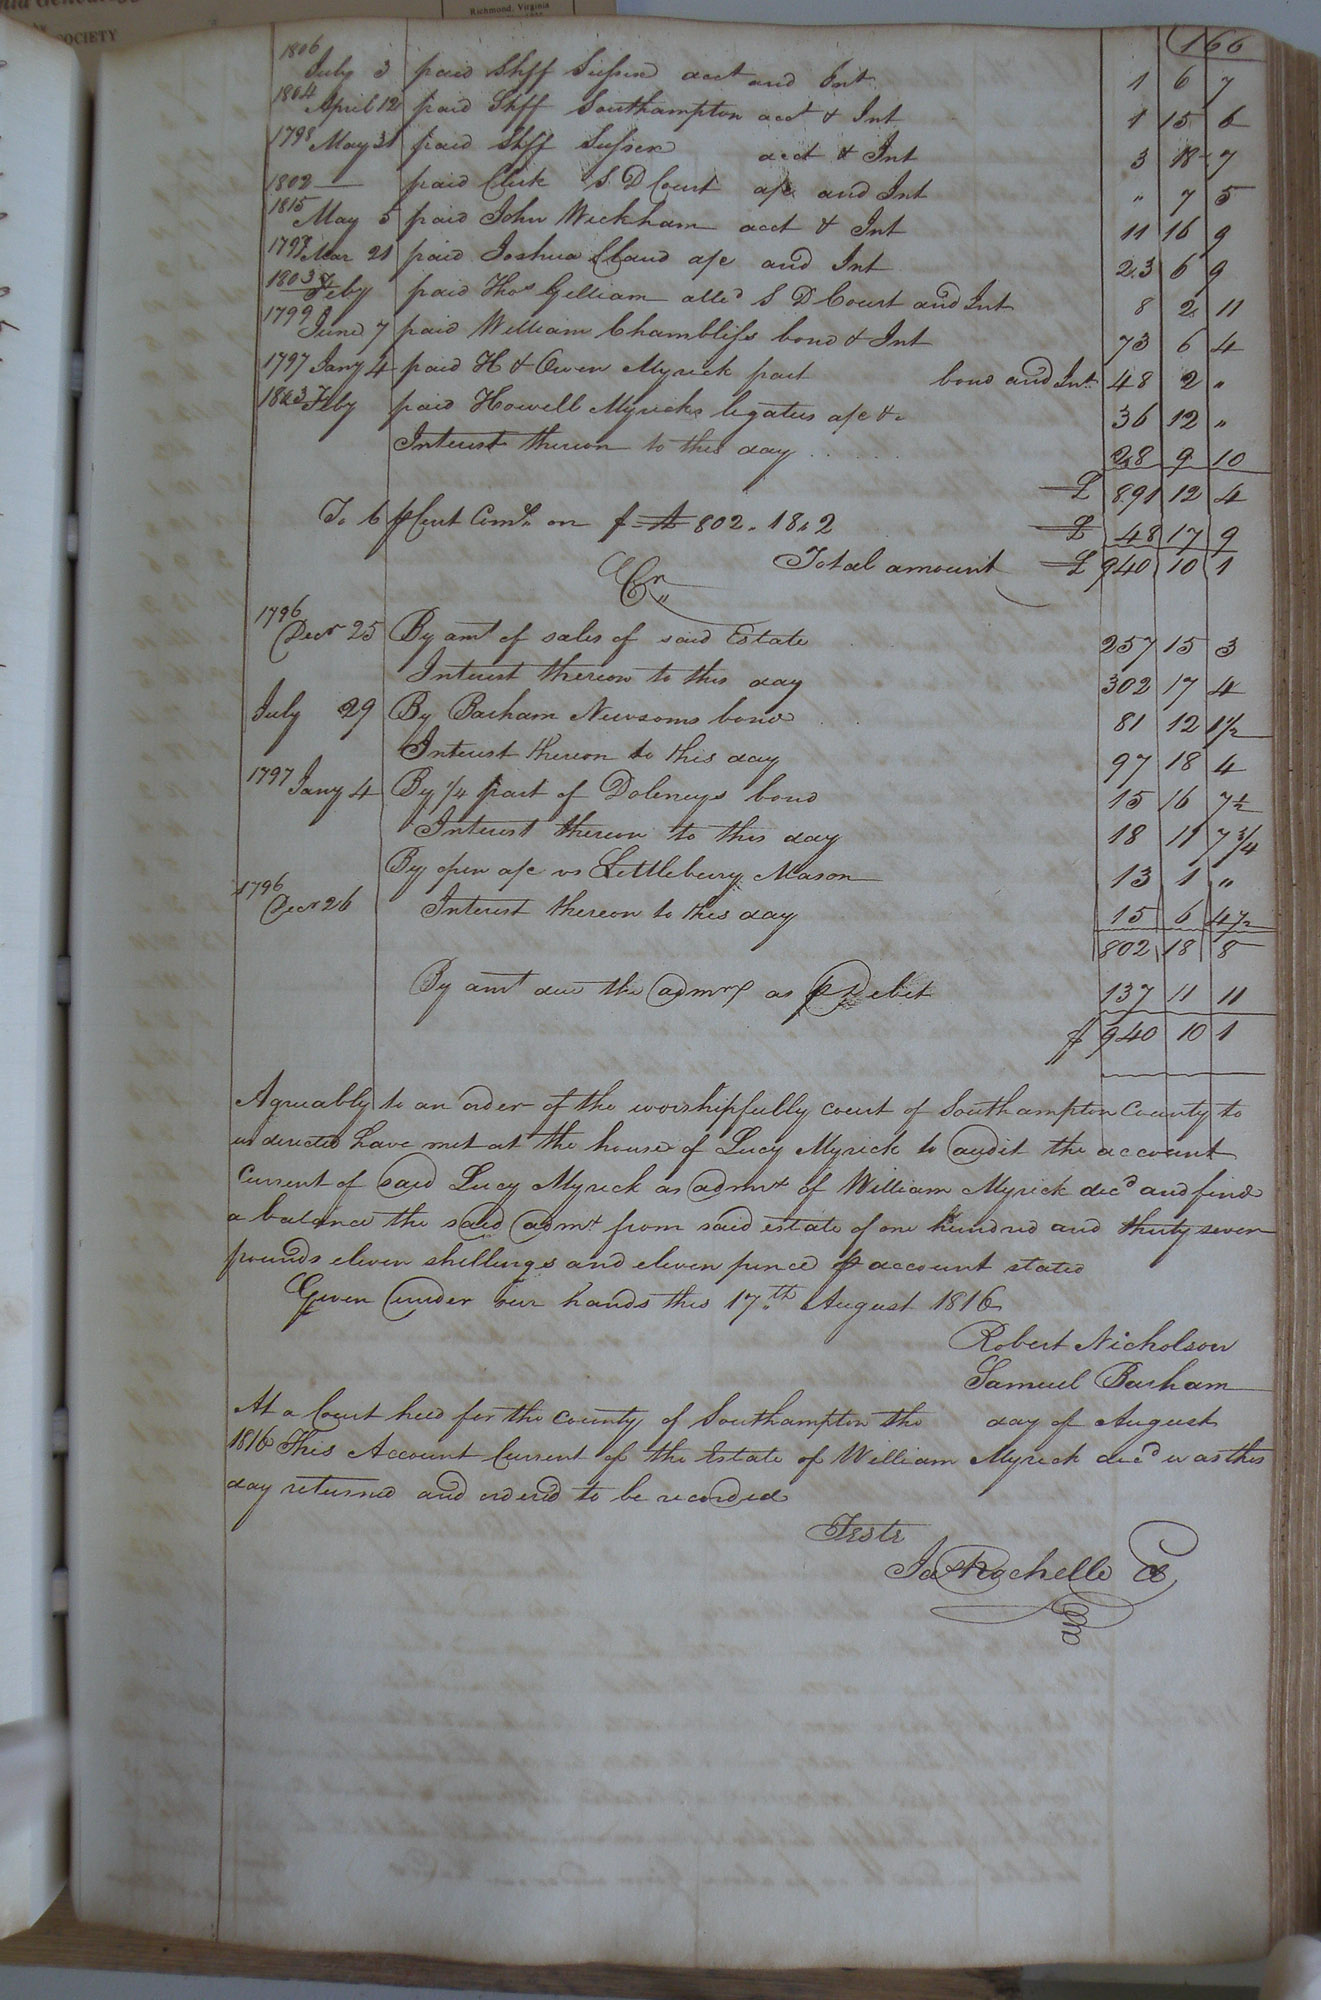 Richmond, Virginia
SOCIETY
166
1806 July 3 paid Shff Sussex acct and Int 1 6 7
1804 April 12 paid Shff Southampton acct & Int 1 15 6
1798 May 31 paid Shff Sussex acct & Int 3 18 7
1802 — paid Clerk S D Court a/c and Int " 7 5
1815 May 5 paid John Wickham acct & Int 11 16 9
1797 Mar 21 paid Joshua Claud a/c and Int 23 6 9
1803 Feby paid Thos Gilliam S D Court and Int 8 2 11
1799 June 7 paid William Chambliss bond & Int 73 6 4
1797 Jany 4 paid H & Owen Myrick part bond and Int 48 2 "
Feby paid Howell Myricks legatees a/c &c 36 12 "
Interest thereon to this day 28 9 10
£ 891 12 4
To 6 ⅌ Cent Coms on £ 802.18.2 £ 48 17 9
Total amount £ 940 10 1
Cr
1796 Decr 25 By amt of sales of said Estate 257 15 3
Interest thereon to this day 302 17 4
July 29 By Barham Newsoms bond 81 12 1½
Interest thereon to this day 97 18 4
1797 Jany 4 By ¼ part of Deloneys bond 15 16 7½
Interest thereon to this day 18 11 7¾
By open a/c vs Littlebury Mason 13 1 "
1796 Decr 26 Interest thereon to this day 15 6 4½
802 18 8
By amt due the admrx as ⅌ Debit 137 11 11
£ 940 10 1
Agreeably to an order of the worshipfully court of Southampton County to
us directed have met at the house of Lucy Myrick to audit the account
Current of said Lucy Myrick as admx of William Myrick decd and find
a balance the said admx from said estate of one hundred and thirty seven
pounds eleven shillings and eleven pence ⅌ account stated
Given under our hands this 17th August 1816
Robert Nicholson
Samuel Barham
At a Court held for the county of Southampton the day of August
1816 This Account Current of the Estate of William Myrick decd was this
day returned and orderd to be recorded
Teste
Jas Rochelle Cl